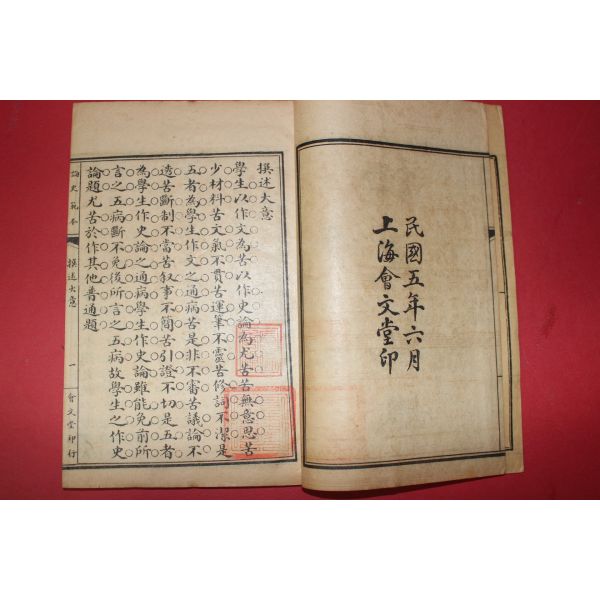 民國五年六月
上海會文堂印
撰述大意
學生以作文為苦以作史論為尤苦苦無意思苦
少材料苦文氣不貫苦運筆不靈苦修詞不潔是
五者為學生作文之通病苦是非不審苦議論不
透苦斷制不當苦敍事不簡苦引證不切是五者
為學生作史論之通病學生作史論雖能免前所
言之五病斷不免後所言之五病故學生之作史
論題尤苦於作其他普通題
論史範本
撰述大意
一
會文堂印行